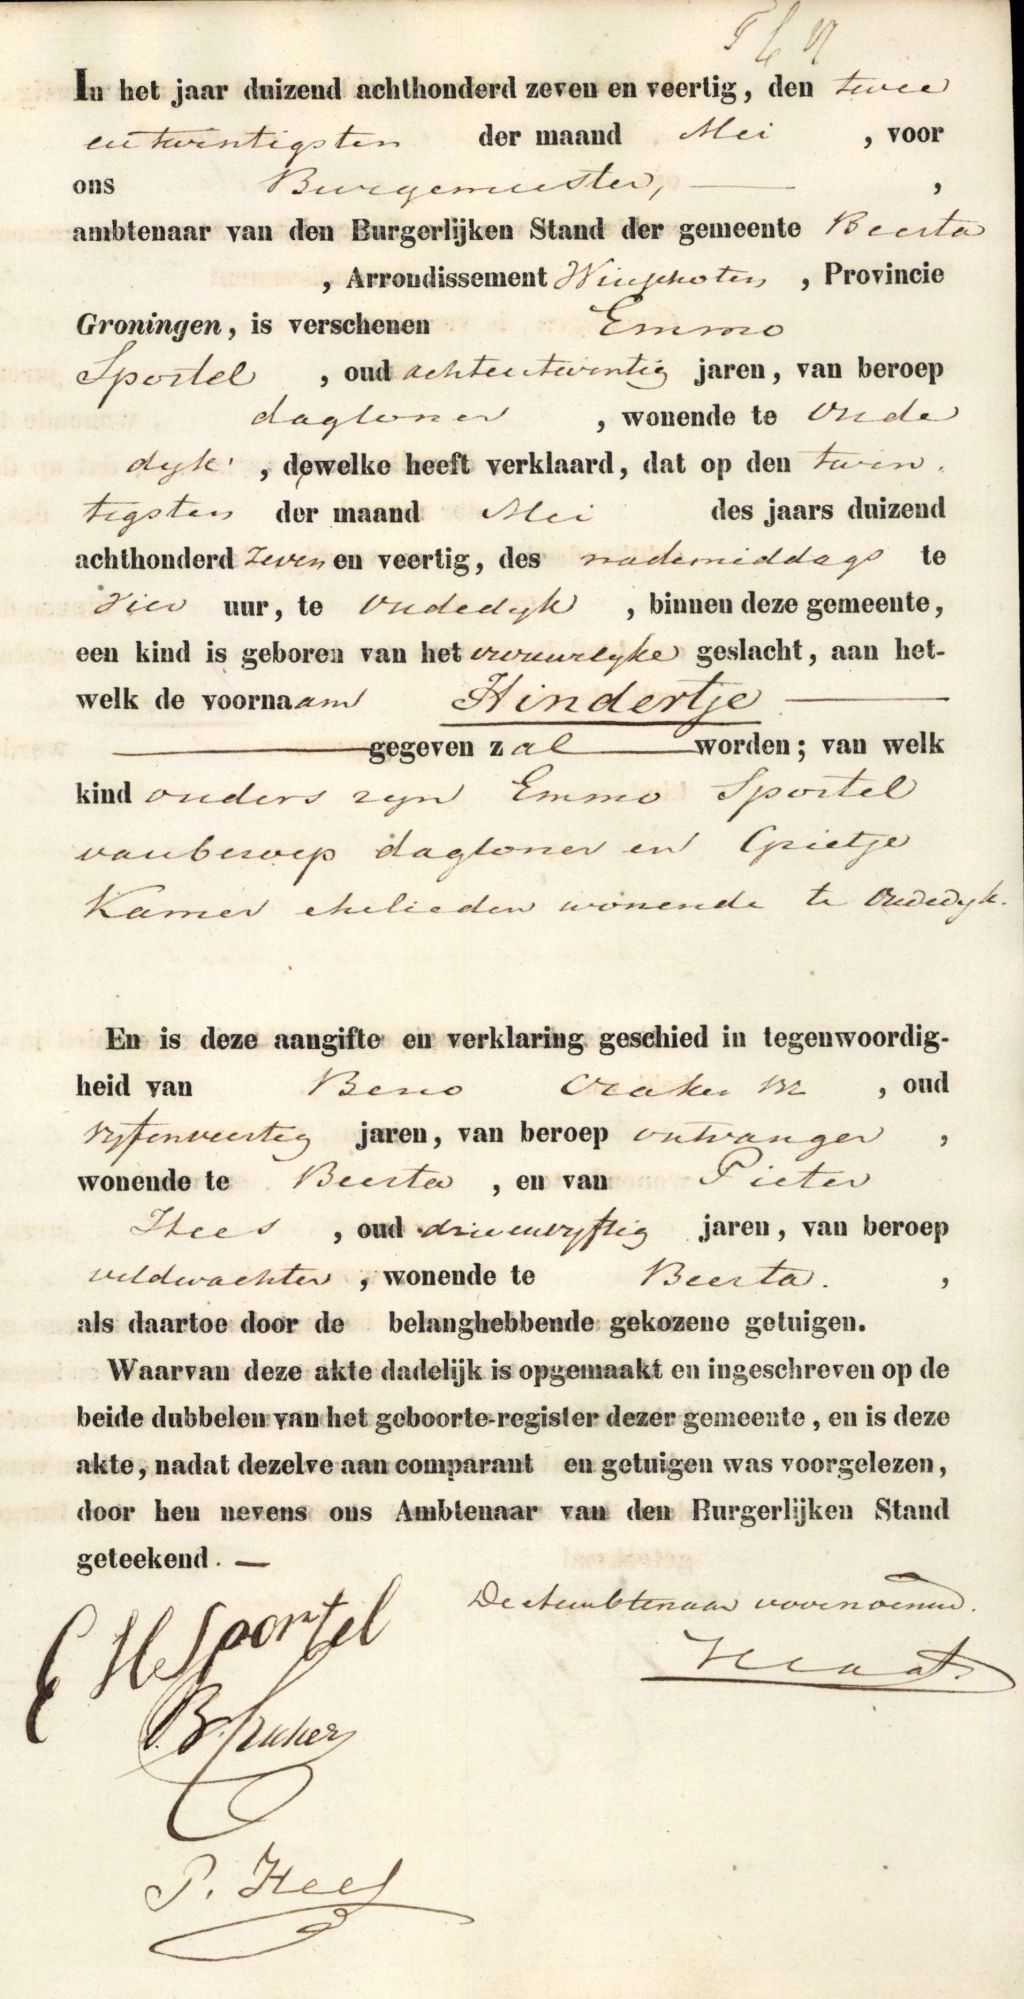 In het jaar duizend achthonderd zeven en veertig, den twee
entwintigsten der maand Mei , voor
ons Burgemeester, ,
ambtenaar van den Burgerlijken Stand der gemeente Beerta
, Arrondissement Winschoten , Provincie
Groningen, is verschenen Emmo
Sportel , oud achtentwintig jaren, van beroep
dagloner , wonende te Oude
dyk , dewelke heeft verklaard, dat op den twin
tigsten der maand Mei des jaars duizend
achthonderd zeven en veertig, des nademiddags te
vier uur, te Oudedyk , binnen deze gemeente,
een kind is geboren van het vrouwelyke geslacht, aan het-
welk de voornaam Hindertje
gegeven zal worden; van welk
kind ouders zyn Emmo Sportel
van beroep dagloner en Grietje
Kamer ehelieden wonende te Oudedyk.
En is deze aangifte en verklaring geschied in tegenwoordig-
heid van Beno , oud
vyfenveertig jaren, van beroep ontvanger ,
wonende te Beerta , en van Pieter
Hees , oud drieenvyftig jaren, van beroep
veldwachter , wonende te Beerta. ,
als daartoe door de belanghebbende gekozene getuigen.
Waarvan deze akte dadelijk is opgemaakt en ingeschreven op de
beide dubbelen van het geboorte-register dezer gemeente, en is deze
akte, nadat dezelve aan comparant en getuigen was voorgelezen,
door hen nevens ons Ambtenaar van den Burgerlijken Stand
geteekend. —
De Ambtenaar voornoemd.
E H Sportel
B.
P. Hees